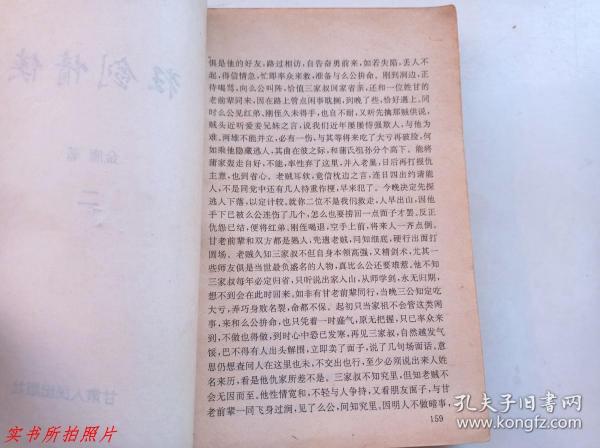 狂剑情侠
金庸 著
二
甘肃人民出版社
俱是他的好友，路过相访，自告奋勇前来，如若失陷，丢人不
起，得信情急，忙即率众来救，准备与么公拚命。刚到涧边，正
待喝骂，向么公叫阵，恰值三家叔回家省亲，还和一位姓甘的
老前辈同来，因在路上管点闲事耽搁，到晚了些，恰好遇上。同
时么公见红弟、刚侄久未得手，也自不耐，又听先擒那贼供说，
贼头近听爱妾兄妹之言，说我们近年屡屡恃强欺人，与他为
难。两雄不能并立，必有一伤，与其等将来吃了大亏再破脸，何
如乘他隐藏逃人，其曲在彼之际，和蒲氏祖孙分个高下。能将
蒲家轰走自好，不能，率性弃了这里，并人老巢，日后再打报仇
主意，也到省心。老贼耳软，竟信枕边之言，连日四出约请能
人，不是同党中还有几人待重作梗，早来犯了。今晚决定先探
逃人下落，以定计较，就你二位不是我们敌走，人早出山，因他
手下已被么公连伤了几个，怎么也要捞回一点面子才罢。反正
仇怨已结，便将红弟、刚侄喝退，空手上前，将来人一齐点倒。
甘老前辈和双方都是熟人，先遇老贼，问知细底，硬行出面打
圆场。老贼久知三家叔不但自身本领高强，又精剑术，尤其一
些师友俱是当世最负盛名的人物，真比么公还要难惹。他不知
三家叔每年必定归省，只听说出家入山，从师学剑，永无归期，
想不到会在此时回来。如非有甘老前辈同行，当晚三公知定吃
大亏，弄巧身败名裂，命都不保。起初只当家祖不会管这类闲
事，来和么公拚命，也只凭着一时盛气，原无把握，只已率众来
到，不做也得做，到时心中恐已发寒，再见三家叔，自然越发气
馁，巴不得有人出头解围，立即卖了面子，说了几句场面话，意
思仍想查问人在这里也未，不交出也行，至少必须说出来人姓
名来历，看是他仇家所差不是。三家叔不知究里，但知老贼不
会无因而至。他性情宽和，不轻与人争持，又看朋友面子，与甘
老前辈一同飞身过涧，见了么公，问知究里，因明人不做暗事，
159
实书所拍照片
孔夫子旧书网